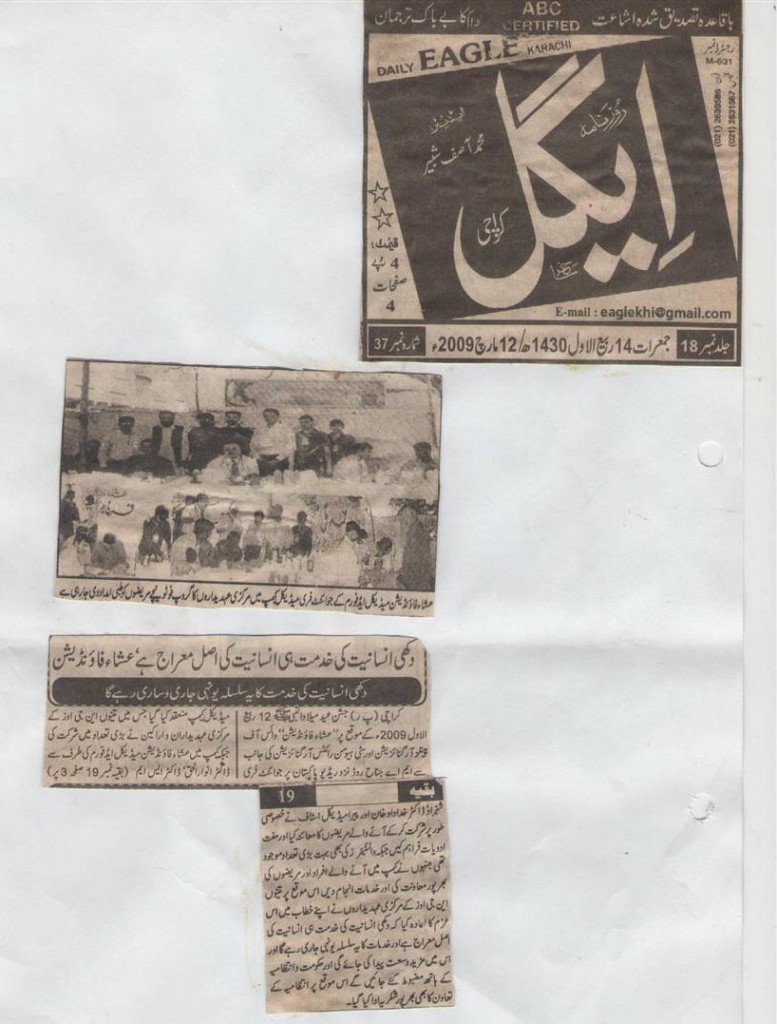 باقاعدہ تصدیق شدہ اشاعت ABC CERTIFIED کا بے باک ترجمان
DAILY EAGLE KARACHI
رجسٹرڈ نمبر
M-631
فون (021) 2630586
فیکس (021) 2631567
روزنامہ
ایڈیٹر
محمد آصف شبیر
ایگل
کراچی
قیمت:
4 روپے
صفحات
4
E-mail : eaglekhi@gmail.com
جلد نمبر 18 جمعرات 14 ربیع الاول 1430ھ/12 مارچ 2009ء شمارہ نمبر 37
عشاء فاؤنڈیشن میڈیکل ایڈ فورم کے جوائنٹ فری میڈیکل کیمپ میں مرکزی عہدیداروں کا گروپ فوٹو نیچے مریضوں کو طبی امداد دی جارہی ہے
دکھی انسانیت کی خدمت ہی انسانیت کی اصل معراج ہے، عشاء فاؤنڈیشن
دکھی انسانیت کی خدمت کا یہ سلسلہ یونہی جاری و ساری رہے گا
کراچی (پ ر) جشن عید میلادالنبیﷺ 12 ربیع
الاول 2009ء کے موقع پر "عشاء فاؤنڈیشن" وائس آف
پیپلز آرگنائزیشن اور سٹی ہیومن رائٹس آرگنائزیشن کی جانب
سے ایم اے جناح روڈ نزد ریڈیو پاکستان پر جوائنٹ فری
میڈیکل کیمپ منعقد کیا گیا جس میں تینوں این جی اوز کے
مرکزی عہدیداران و اراکین نے بڑی تعداد میں شرکت کی
جبکہ کیمپ میں عشاء فاؤنڈیشن میڈیکل ایڈ فورم کی طرف سے
ڈاکٹر انوار الحق، ڈاکٹر ایس ایم (بقیہ نمبر 19 صفحہ 3 پر)
بقیہ 19
شہزاد، ڈاکٹر خداداد خان اور پیرامیڈیکل اسٹاف نے خصوصی
طور پر شرکت کرکے آنے والے مریضوں کا معائنہ کیا اور مفت
ادویات فراہم کیں جبکہ والنٹیئرز کی بھی بہت بڑی تعداد موجود
تھی جنہوں نے کیمپ میں آنے والے افراد اور مریضوں کی
بھرپور معاونت کی اور خدمات انجام دیں اس موقع پر تینوں
این جی اوز کے مرکزی عہدیداروں نے اپنے خطاب میں اس
عزم کا اعادہ کیا کہ دکھی انسانیت کی خدمت ہی انسانیت کی
اصل معراج ہے اور خدمات کا یہ سلسلہ یونہی جاری رہے گا اور
اس میں مزید وسعت پیدا کی جائے گی اور حکومت و انتظامیہ
کے ہاتھ مضبوط کئے جائیں گے اس موقع پر انتظامیہ کے
تعاون کا بھی بھرپور شکریہ ادا کیا گیا۔